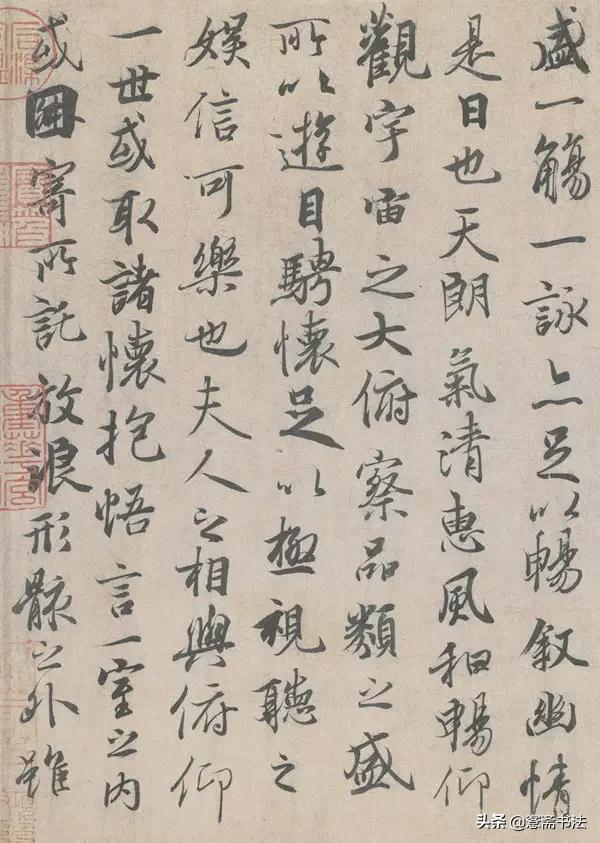 盛一觴一詠亦足以暢叙幽情
是日也天朗氣清惠風和暢仰
觀宇宙之大俯察品類之盛
所以遊目騁懷足以極視聽之
娛信可樂也夫人之相與俯仰
一世或取諸懷抱悟言一室之內
或因寄所託放浪形骸之外雖
头条@蹇斋书法